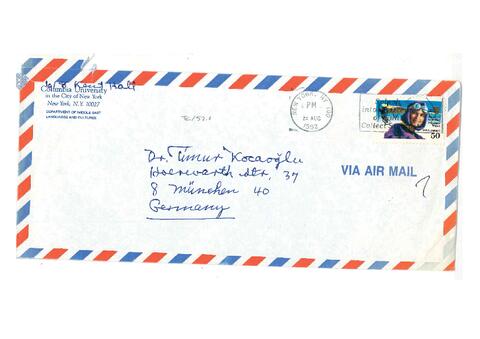 Columbia University
in the City of New York
New York, N.Y. 10027
DEPARTMENT OF MIDDLE EAST
LANGUAGES AND CULTURES
NEW YORK, NY 100
PM
AUG
1992
Collect
50
Dr. Timur Kocaoğlu
Hoerwarth Str. 37
8 München 40
Germany
VIA AIR MAIL